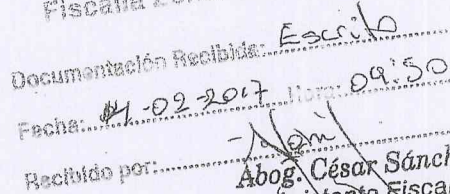 Fiscalía
Documentación Recibida: Escrito
Fecha: 14-02-2017 Hora: 09:50
Recibido por:
Abog. César Sánch
Fiscal